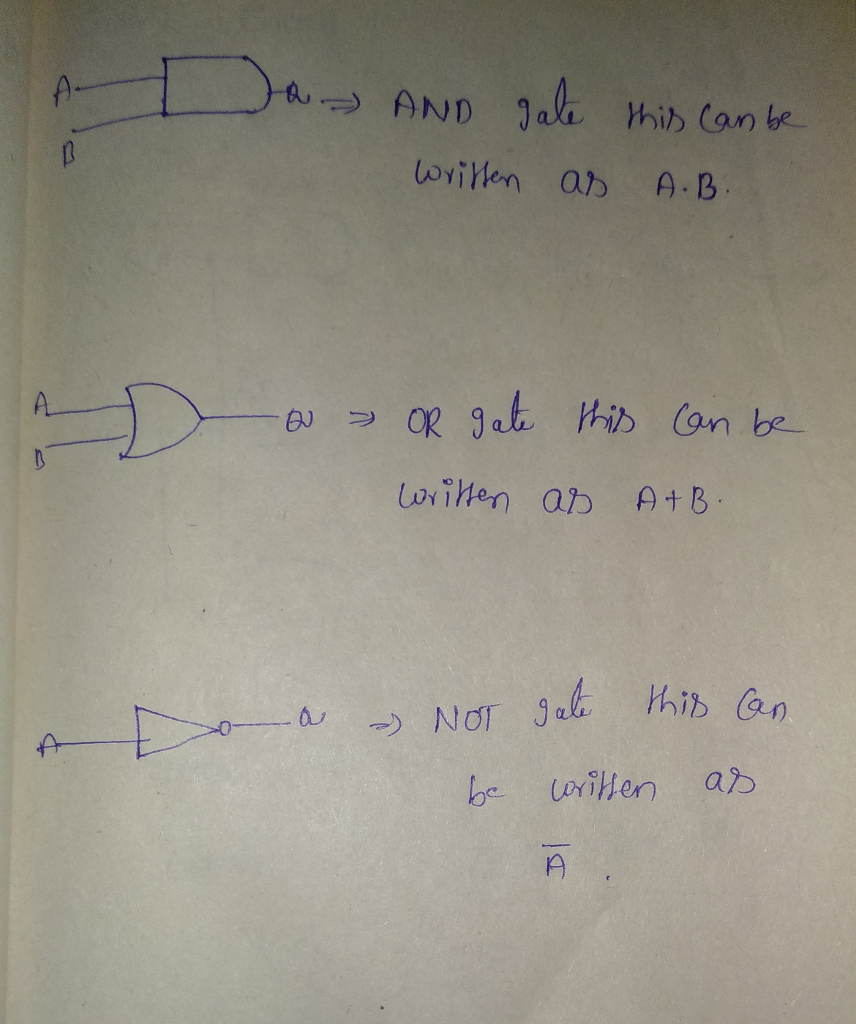 A
Q ⇒ AND gate this can be
B
written as A.B.
A
Q ⇒ OR gate this can be
B
written as A+B.
A
Q ⇒ NOT gate this can
be written as
A̅.